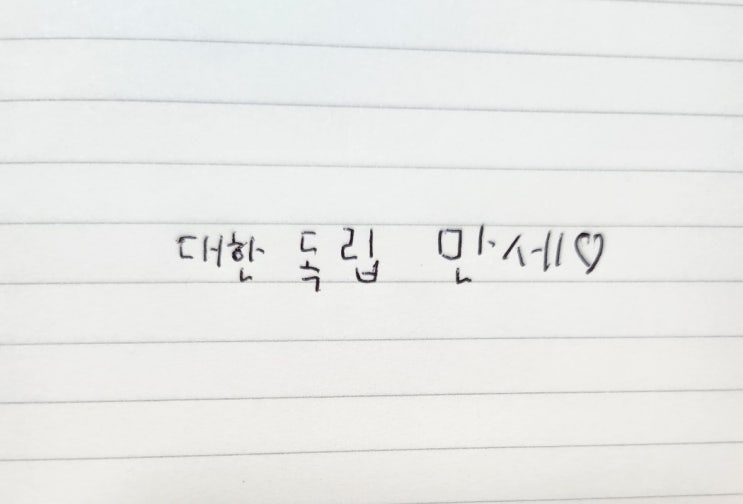 대한 독립 만세♡